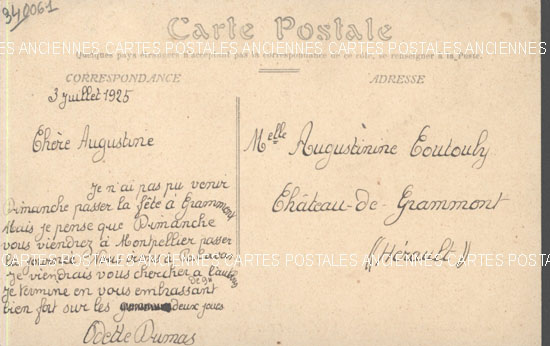 340061
Carte Postale
CARTES POSTALES ANCIENNES CARTES POSTALES ANCIENNES CARTES POSTALES ANCIENNES
Quelques pays étrangers n'acceptent pas la correspondance de ce côté, se renseigner à la Poste.
CORRESPONDANCE
3 juillet 1925
Chère Augustine
Je n'ai pas pu venir
Dimanche passer la fête à Grammont
Mais je pense que Dimanche
vous viendrez à Montpellier passer
la journée
Je viendrais vous chercher à l'autobus
Je termine en vous embrassant
bien fort sur les deux joues
Odette Dumas
ADRESSE
Melle Augustinine Coulouly
Château-de-Grammont
(Hérault)